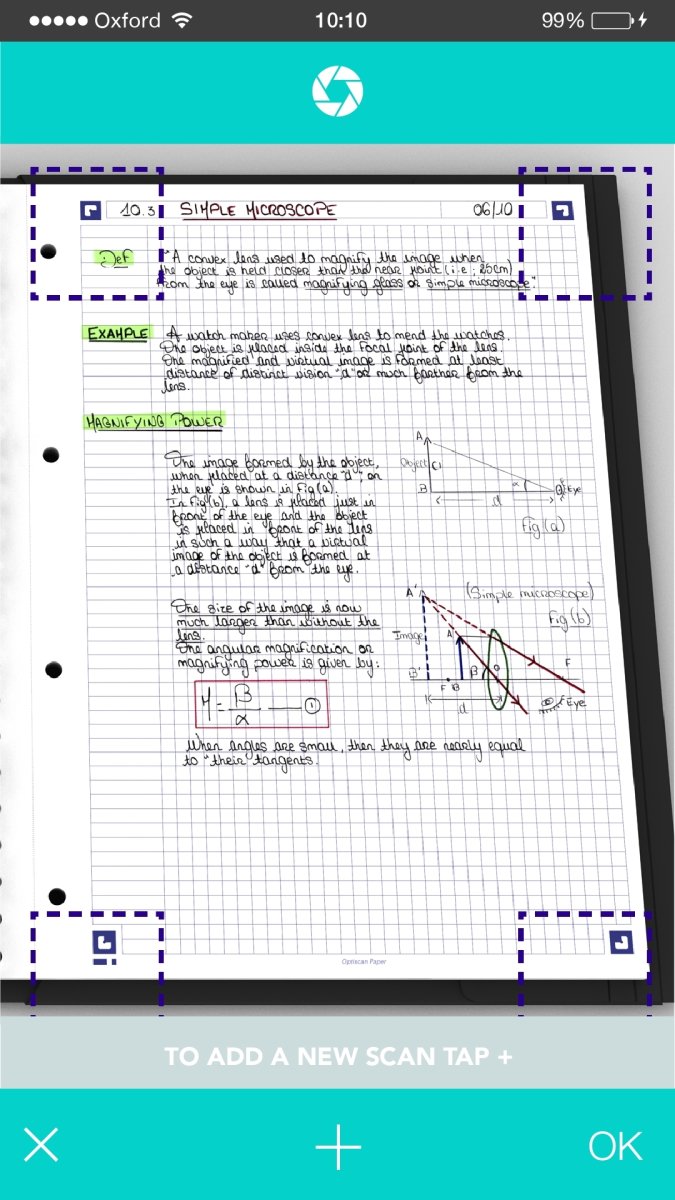 Oxford 10:10 99%
10.3 SIMPLE MICROSCOPE 06/10
Def "A convex lens used to magnify the image when
the object is held closer than the near point (i.e; 25cm)
from the eye is called magnifying glass or simple microscope."
EXAMPLE A watch maker uses convex lens to mend the watches.
The object is placed inside the focal point of the lens.
The magnified and virtual image is formed at least
distance of distinct vision "d" or much farther from the
lens.
MAGNIFYING POWER
The image formed by the object,
when placed at a distance "d", on
the eye is shown in Fig(a).
In Fig(b), a lens is placed just in
front of the eye and the object
is placed in front of the lens
in such a way that a virtual
image of the object is formed at
a distance "d" from the eye.
A
Object
B α Eye
d
Fig(a)
The size of the image is now
much larger than without the
lens.
The angular magnification or
magnifying power is given by:
M = β/α —— ①
A' (Simple microscope)
Fig(b)
Image A
B' β O F
F B
d Eye
When angles are small, then they are nearly equal
to "their" tangents.
Optiscan Paper
TO ADD A NEW SCAN TAP +
OK